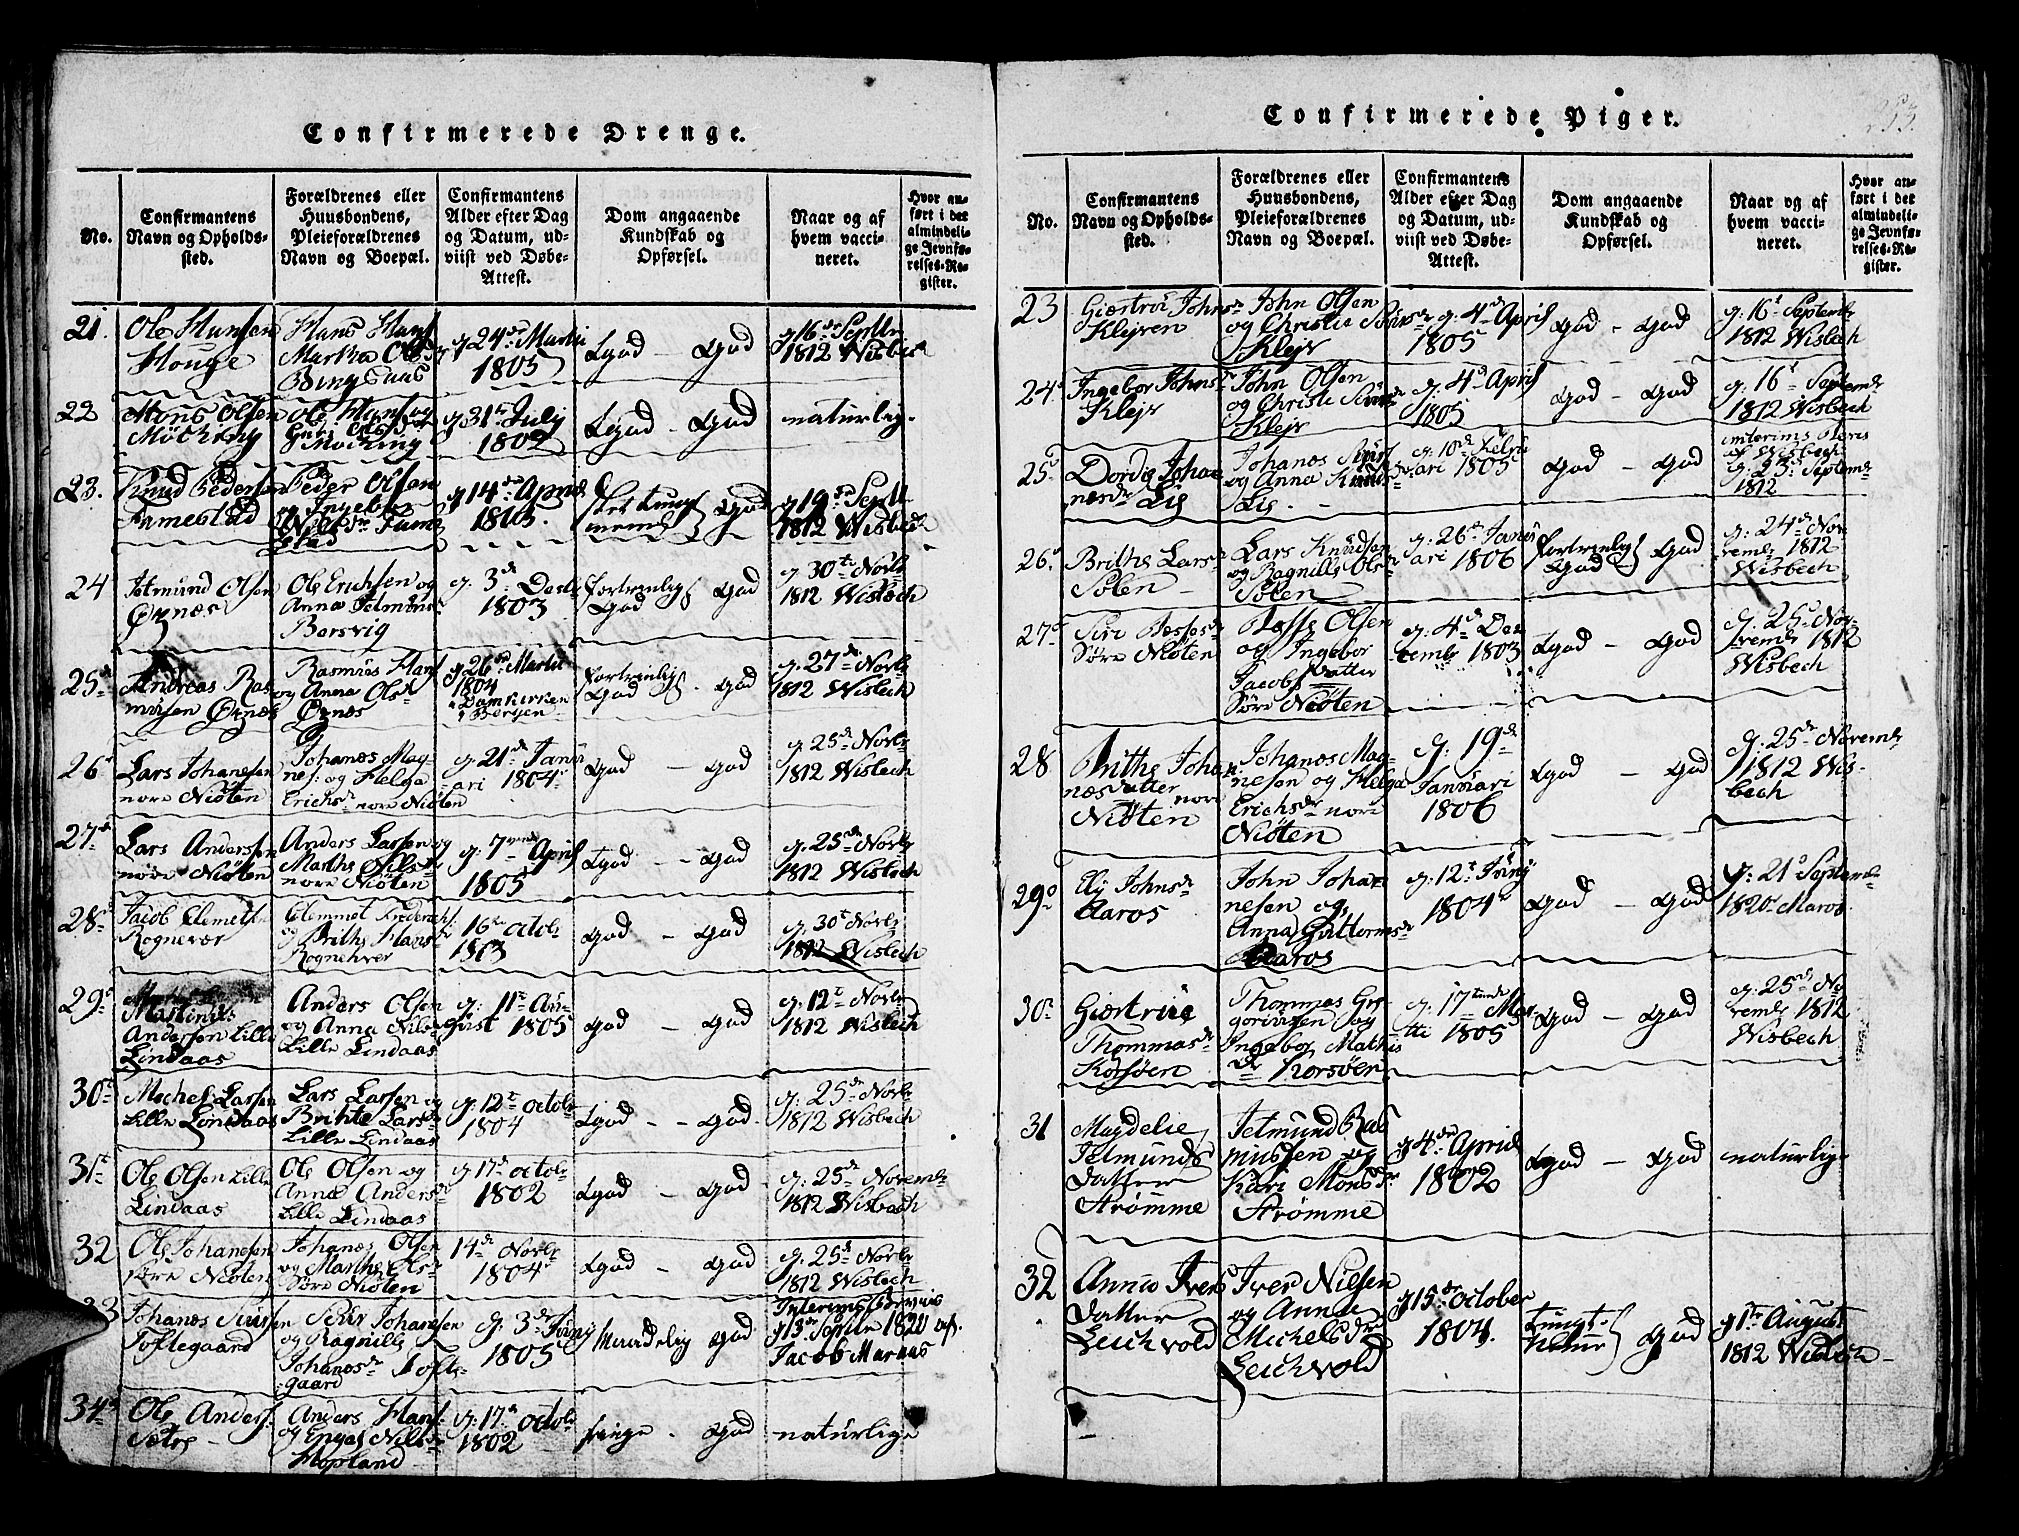 Confirmerede Drenge.
No.
Confirmantens
Navn og Opholds-
sted.
Forældrenes eller
Huusbondens,
Pleieforældrenes
Navn og Boepæl.
Confirmantens
Alder efter Dag
og Datum, ud-
viist ved Døbe-
Attest.
Dom angaaende
Kundskab og
Opførsel.
Naar og af
hvem vacci-
neret.
Hvor an-
ført i det
almindeli-
ge Jevnfø-
relses-Re-
gister.
21.
Ole Hansen
Houge
Hans Hans
Martha Olsd
g 24de Martii
1805
god - God
g 16de Septbr
1812 Wisbech
22
Mons Olsen
Möcking
Ole Hans og
Möcking
g. 31te July
1802
God - God
naturlig.
23.
Knud Pedersen
Famestad
Peder Olsen
og Ingeb.
Nielsdr Fame
stad
g 14de April
1803.
God
g 19de Septbr
1812 Wisbech
24
Jetmund Olsen
Øxnæs
Ole Erichsen og
Anna Jetmunds
Børsvig
g. 3de Decbr
1803
fortrinlig
God - God
g. 30te Novbr
1812 Wisbech
25
Andreas Ras
musen Øxnæs
Rasmus Hans
og Anna Olsdr
Øxnæs
g 26de Martii
1804
i Domkirken
i Bergen
fortrinlig
God - God
g. 27de Novbr
1812 Wisbech
26
Lars Johanesen
nore Niøten
Johanes Mag
nes: og Helga
Erichsdr nore Niøten
g. 21de Janu
ari 1804
God - God
g. 25de Novbr
1812 Wisbech
27
Lars Andersen
nore Niøten
Anders Larsen og
Marthe Olsdr
nore Niøten
g. 7vende April
1805
God - God
g. 25de Novbr
1812 Wisbech
28
Jacob Clemets
Rognevær
Clemmet Anders
og Brithe Hans
Rognehver
16te octobr
1803
God - God
g. 30t Novbr
1812 Wisbech
29
Martinus
Andersen Lille
Lindaas
Anders Olsen
og Anna Nilsdr
Lille Lindaas
g: 11te Au
gust 1805
God - God
g. 12t Novbr
1812 Wisbech
30
Michel Larsen
Lille Lindaas
Lars Larsen og
Brihte Larsdr
Lille Lindaas
g: 12t octobr
1804
God - God
g: 25de Novbr
1812 Wisbech
31
Ole Olsen Lille
Lindaas
Ole Olsen og
Anna Andersdr
Lille Lindaas
g 17de octobr
1802
God - God
g. 25de Novembr
1812 Wisbech
32
Ole Johanesen
søre Niøten
Johanes Olsen
og Marthe Olsdr
Søre Niøten
14de Novbr
1804
God - God
g. 25de Novbr
1812 Wisbech
33
Johanes Siursen
Toftegaard
Siur Johanesen
og Ragnille
Johanesdr Tofte
gaard
g. 3de Juny
1805
Maadelig God
Interims Beviis
g 13de Septbr 1820 af
Jacob Maraas
34
Ole Anders:
Sætre
Anders Hans
og Engel Nilsdr
Hopland
g. 17de octobr
1802
ringe - God
naturlige
Confirmerede Piger.
253.
No.
Confirmantens
Navn og Opholds-
sted.
Forældrenes eller
Huusbondens,
Pleieforældrenes
Navn og Boepæl.
Confirmantens
Alder efter Dag
og Datum, ud-
viist ved Døbe-
Attest.
Dom angaaende
Kundskab og
Opførsel.
Naar og af
hvem vacci-
neret.
Hvor an-
ført i det
almindeli-
ge Jevnfø-
relses-Re-
gister.
23
Giertrui Johnsdr
Klejven
John Olsen
og Christie Siursdr
Klejv
g. 4de April
1805
God - God
g. 16t Septembr
1812 Wisbech
24
Ingebor Johnsdr
Klejv
John Olsen
og Christi Siursdr
Klejv
g: 4de April
1805
God - God
g: 16t Septembr
1812 Wisbech
25
Dordei Joha
nesdr Lie
Johanes Siurs
og Anna Knudsdr
Lie
g: 10de Febru
ari 1805
God - God
interims Beviis
af Wisbech
g: 23de Septembr
1812
26.
Brithe Larsdr
Solen
Lars Knudsen
og Ragnille Olsdr
Solen
g: 26de Janu
ari 1806
fortrinlig
God God
g: 24de Nov
vembr 1812
Wisbech
27
Siri Basses
Søre Niøten
Basse Olsen
og Ingebor
Jacobs Datter
Søre Niøten
g: 4de De
cembr 1803
God - God
g. 25de No-
vembr 1812
Wisbech
28
Brithe Joha
nes Datter nore
Niøten
Johanes Mag-
nesen og Helga
Erichsdr nore
Niøten
g: 19de
Januari
1806
God - God
g: 25de Novembr
1812 Wis-
bech
29
Ely Johnsdr
Aaros
John Joha
nesen og
Anna Guttormsdr
Aaros
g: 12t Juny
1804
God - God
g: 21de Septembr
1820 Maraas
30
Giertrue
Thommasdr
Korsøen
Thommas Gre
goriusen og
Ingebor Mathis
dr Korsøen
g: 17tende Mar
tii 1805
God - God
g: 25de No
vembr 1812
Wisbech
31
Magdelie
Jetmunds
Datter
Strømme
Jetmund Ras
mussen og
Kari Monsdr
Strømme
g 4de April
1802
God - God
naturlig
32
Anna Ivers
Datter
Leichvold
Iver Nielsen
og Anna
Michelsdr
Leichvold
g 15de october
1804.
God
g 1te August
1812 Wisbech